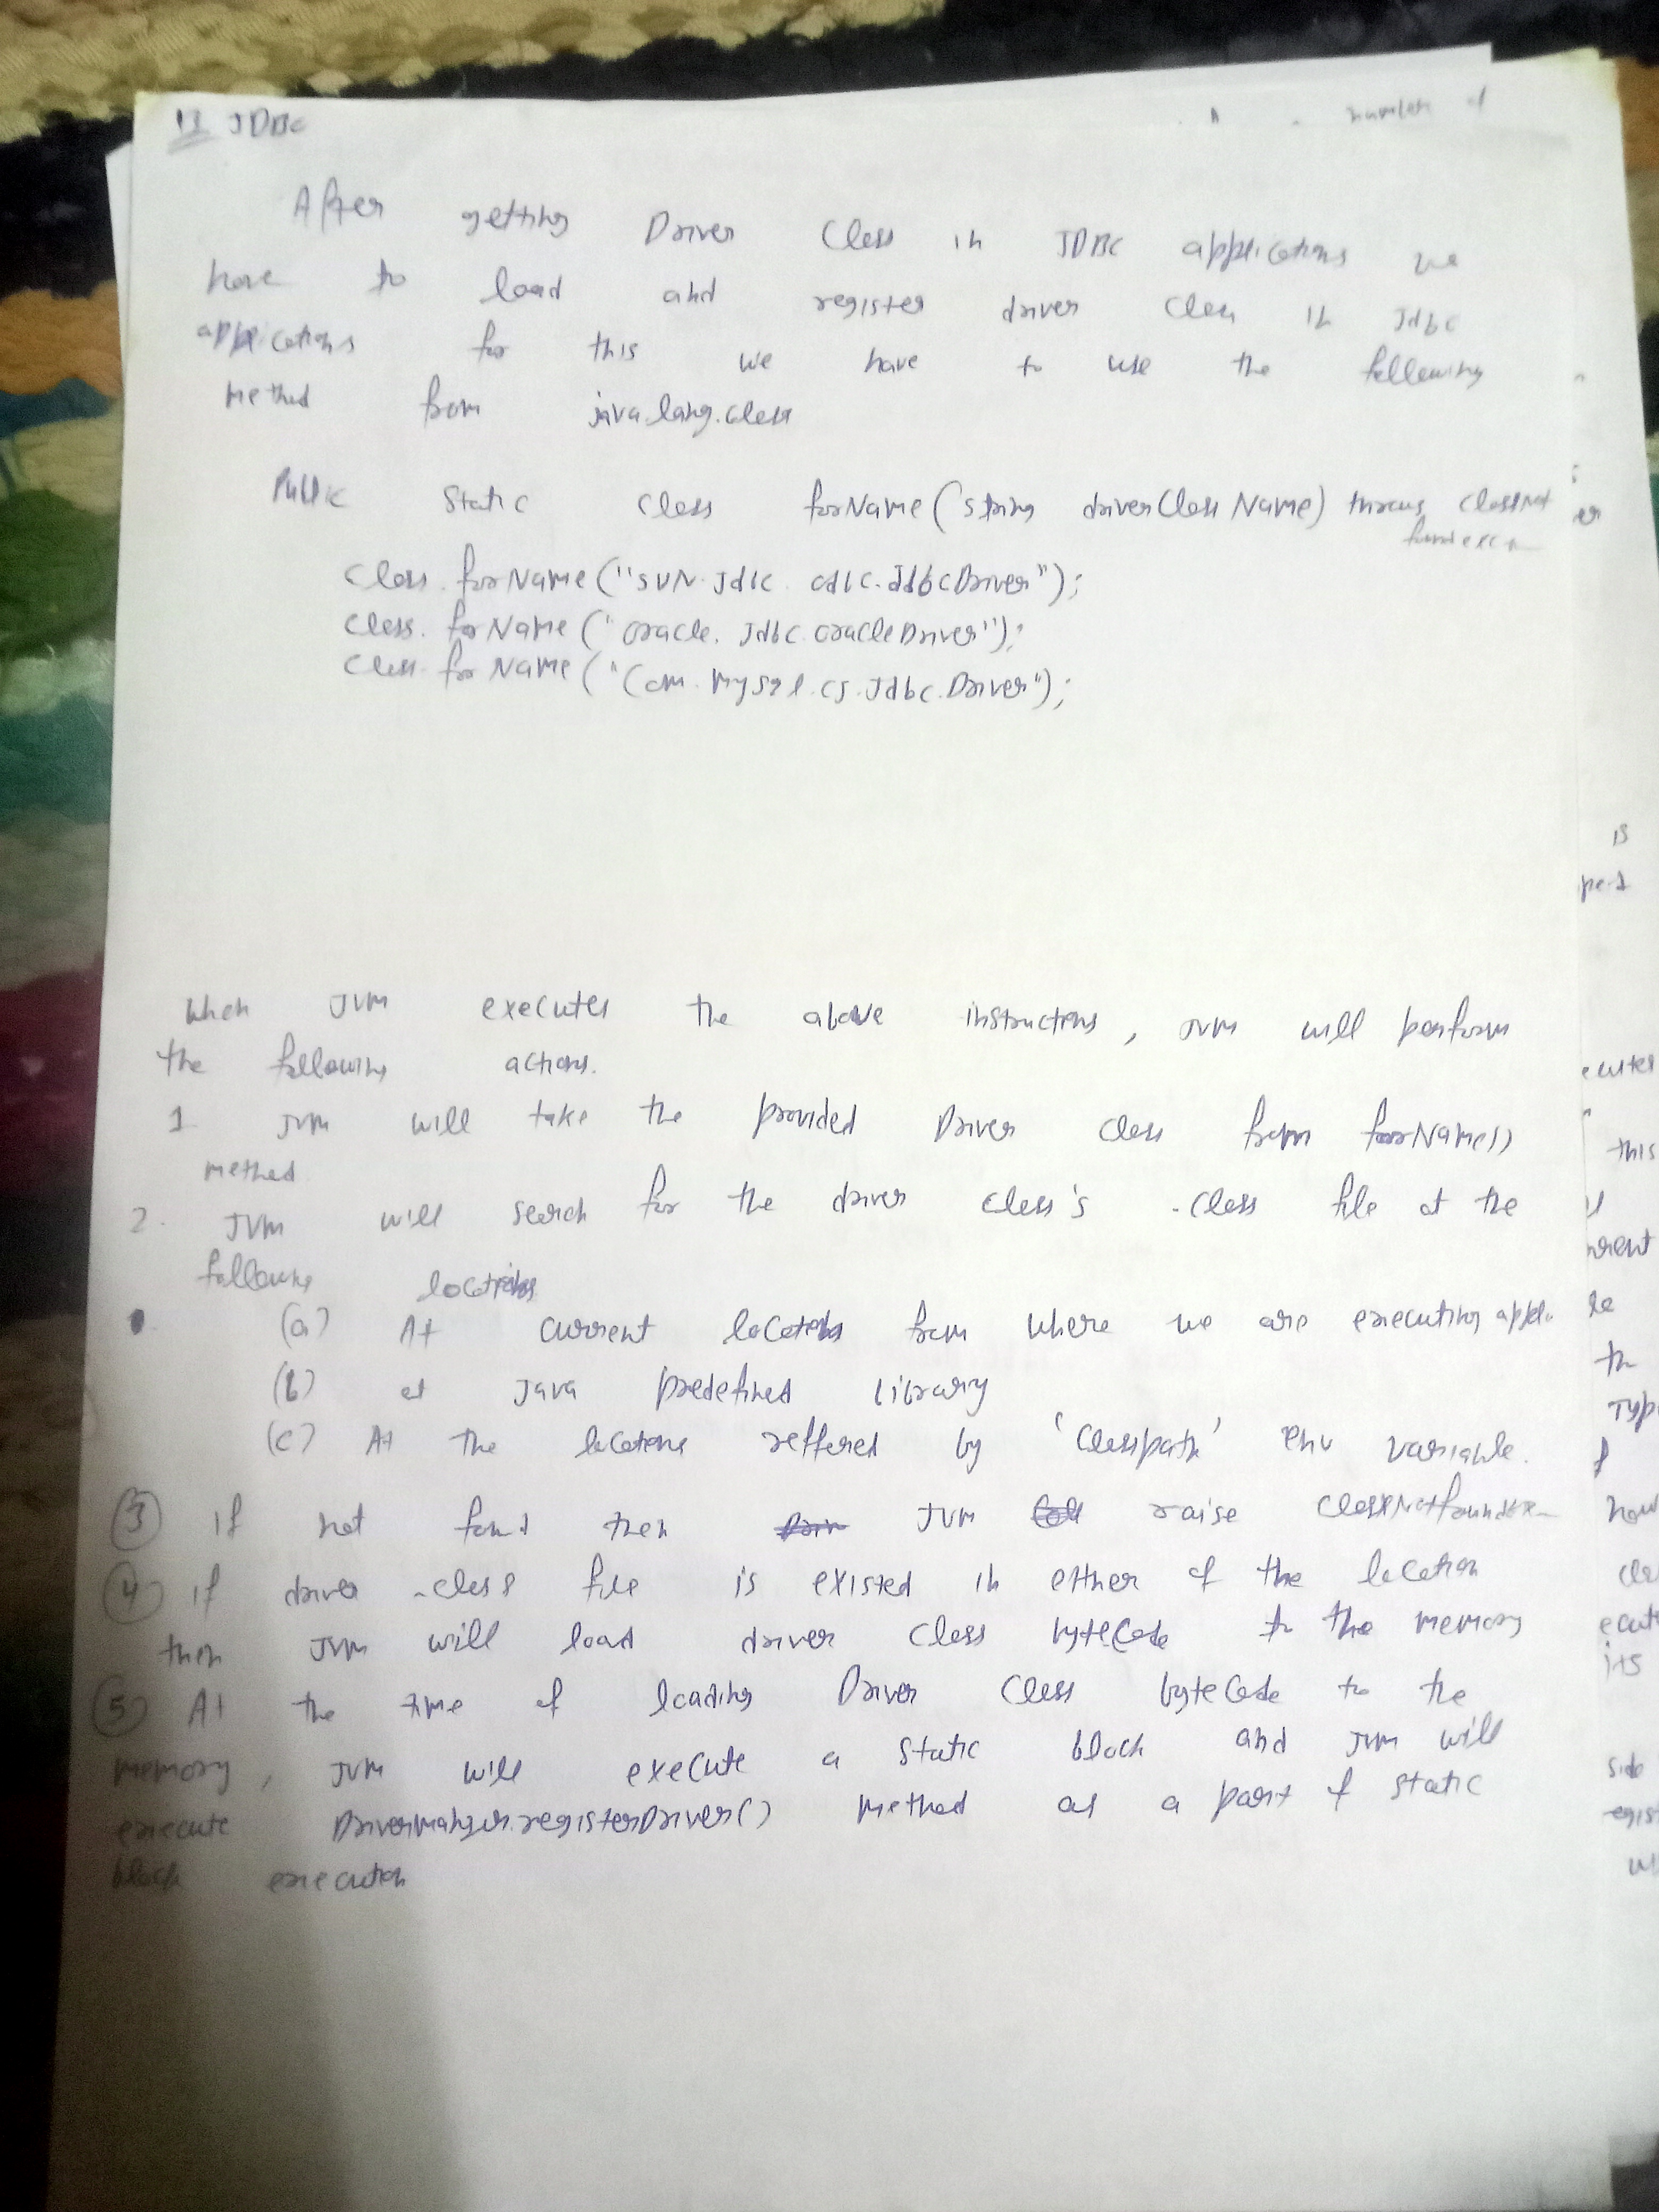 13 JDBC
number of
After getting Driver Class in JDBC applications we
have to load and register driver class in Jdbc
applications for this we have to use the following
method from java.lang.class
Public Static class forName(String driverClassName) throws ClassNot
foundexce
class.forName("sun.Jdbc.odbc.JdbcDriver");
class.forName("oracle.Jdbc.oracleDriver");
class.forName("Com.mysql.cj.Jdbc.Driver");
When JVM executes the above instructions, JVM will perform
the following actions.
1 JVM will take the provided Driver class from forName()
method
2. JVM will search for the driver class's .class file at the
following locations
(a) At current locations from where we are executing appli.
(b) at Java predefined library
(c) At the locations reffered by 'Classpath' env variable.
3 if not found then JVM raise classNotfoundex
4 if driver .class file is existed in either of the location
then JVM will load driver class bytecode to the memory
5 At the time of loading Driver class bytecode to the
memory, JVM will execute a static block and JVM will
execute DriverManager.registerDriver() method as a part of static
block execution
er
is
this
the
its
side